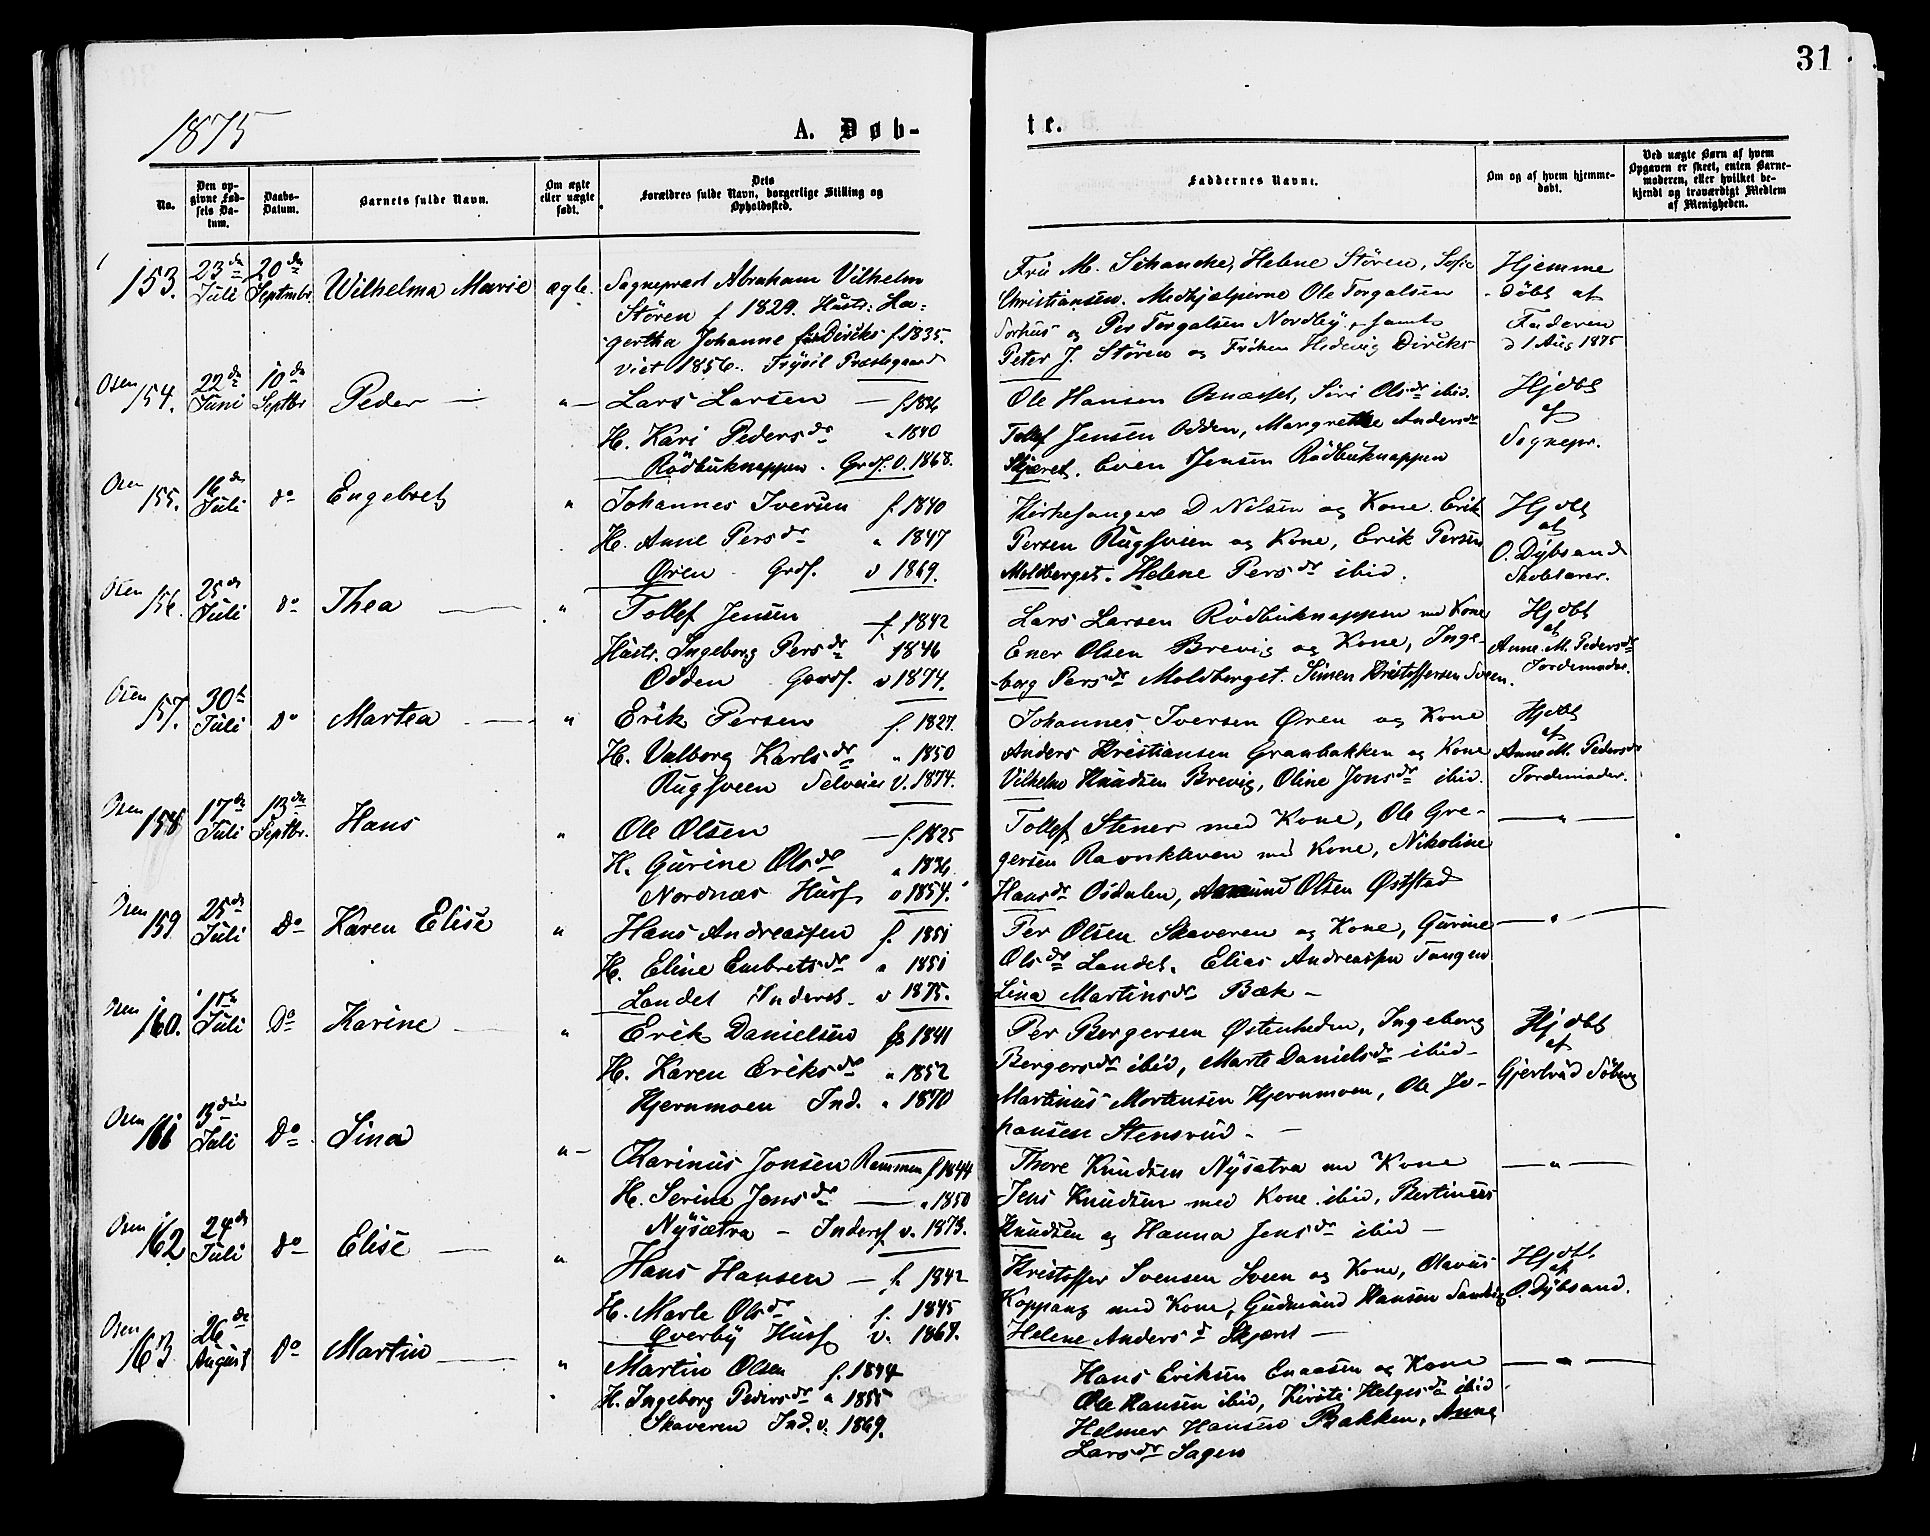 31
1875
A. Døb-
te.
No.
Den op-
givne Fød-
sels Da-
tum.
Daabs-
Datum.
Barnets fulde Navn.
Om ægte
eller uægte
født.
Dets
Forældres fulde Navn, borgerlige Stilling og
Opholdssted.
Faddernes Navne.
Om og af hvem hjemme-
døbt.
Ved uægte Børn af hvem
Opgaven er skeet, enten Barne-
moderen, eller hvilket be-
kjendt og troværdigt Medlem
af Menigheden.
153. 23de Juli 20de Septembr Wilhelma Marie ægte.
Sogneprest Abraham Vilhelm
Stören f 1829. Hustr: Ha-
gertha Johanne født Diriks f. 1835.
viet 1856. Trysil Præstegaard
Fru M. Schancke, Helene Stören, Sofie
Christiansen. Medhjælperne Ole Torgalsen
Sorhus og Per Torgalsen Nordby, samt
Peter J. Stören og Fröken Hedevig Diriks
Hjemme
døbt af
Faderen
d 1 Aug 1875
Osen 154. 22de Juni 10de Septbr Peder "
Lars Larsen f 1836
H. Kari Pedersdr " 1840
Rödbuknappen. Grdf. v. 1868.
Ole Hansen Osnæsset, Siri Olsdr ibid.
Tollef Jensen Odden, Margrethe Andersdr
Skjæret. Even Jensen Rödbuknappen
Hjdbt
af
Sognepr.
Osen 155. 16de Juli do Engebret "
Johannes Iversen f. 1840
H. Anne Persdr " 1847
Øren. Grdf. v 1869.
Kirkesanger D Nilsen og Kone. Erik
Persen Rugsveen og Kone, Erik Persen
Moldberget. Helene Persdr ibid.
Hjdbt
af
O. Dybsand
Skolelærer.
Osen 156. 25de Juli do Thea "
Tollef Jensen f. 1842
Hustr. Ingeborg Persdr 1846
Odden Gaardf. v 1874.
Lars Larsen Rödbuknappen med Kone
Ener Olsen Brevig og Kone, Inge-
borg Persdr Moldberget. Simen Kristoffersen Sveen.
Hjdbt
af
Anne M. Pedersdr
Jordemoder.
Osen 157. 30te Juli Do Martea "
Erik Persen f. 1827.
H. Valborg Karlsdr " 1850
Rugsveen Selveier v. 1874.
Johannes Iversen Øren og Kone
Anders Kristiansen Graabakken og Kone
Vilhelm Knudsen Brevig, Oline Jonsdr ibid.
Hjdbt
af
Anne M. Pedersdr
Jordemoder.
Osen 158 17de Juli 13de Septbr. Hans "
Ole Olsen f. 1825
H. Gurine Olsdr " 1836.
Nordnæs Husf v 1854.
Tollef Stener med Kone, Ole Gre-
gersen Ravnkleven med Kone, Nikoline
Hansdr Osdalen, Amund Olsen Øststad
— " —
Osen 159 25de Juli Do Karen Elise "
Hans Andreassen f. 1851
H. Eline Embretsdr " 1851
Landet Inderst. v 1875.
Per Olsen Skaveren og Kone, Gurine
Olsdr Landet. Elias Andreassen Tangen
Lina Martinsdr Bæk —
— " —
Osen 160. Juli Do Karine "
Erik Danielsen f 1841
H. Karen Eriksdr " 1852
Hjernmoen Ind. " 1870
Per Bergersen Østenheden, Ingeborg
Bergersdr ibid, Marte Danielsdr ibid —
Martinus Mortensen Hjernmoen, Ole Jo-
hansen Stensrud —
Hjdbt
af
Gjertrud Söberg
Osen 161 13de Juli Do Lina "
Karinus Jonsen Rammen f 1844
H. Serine Jensdr " 1850
Nysætra — Inderst v. 1873.
Thore Knudsen Nysætra med Kone
Jens Knudsen med Kone ibid, Bertinus
Knudsen og Hanna Jensdr ibid —
— " —
Osen 162 24de Juli do Elise "
Hans Hansen f. 1842
H. Marte Olsdr f. 1845
Øverby Husf v. 1867.
Kristoffer Svensen Sveen og Kone, Olavus
Koppang med Kone, Gudmund Hansen Sandvig
Helene Andersd Skjæret —
Hjdbt.
af
O. Dybsand.
Osen 163 26de August Do Martin "
Martin Olsen f. 1844
H. Ingeborg Pedersdr " 1855
Skaveren Ind. v. 1869.
Hans Eriksen Enaasen og Kone
Ole Hansen ibid, Kirsti Helgesdr ibid
Helmer Hansen Bakken, Anne
Larsdr Sagen
— " —